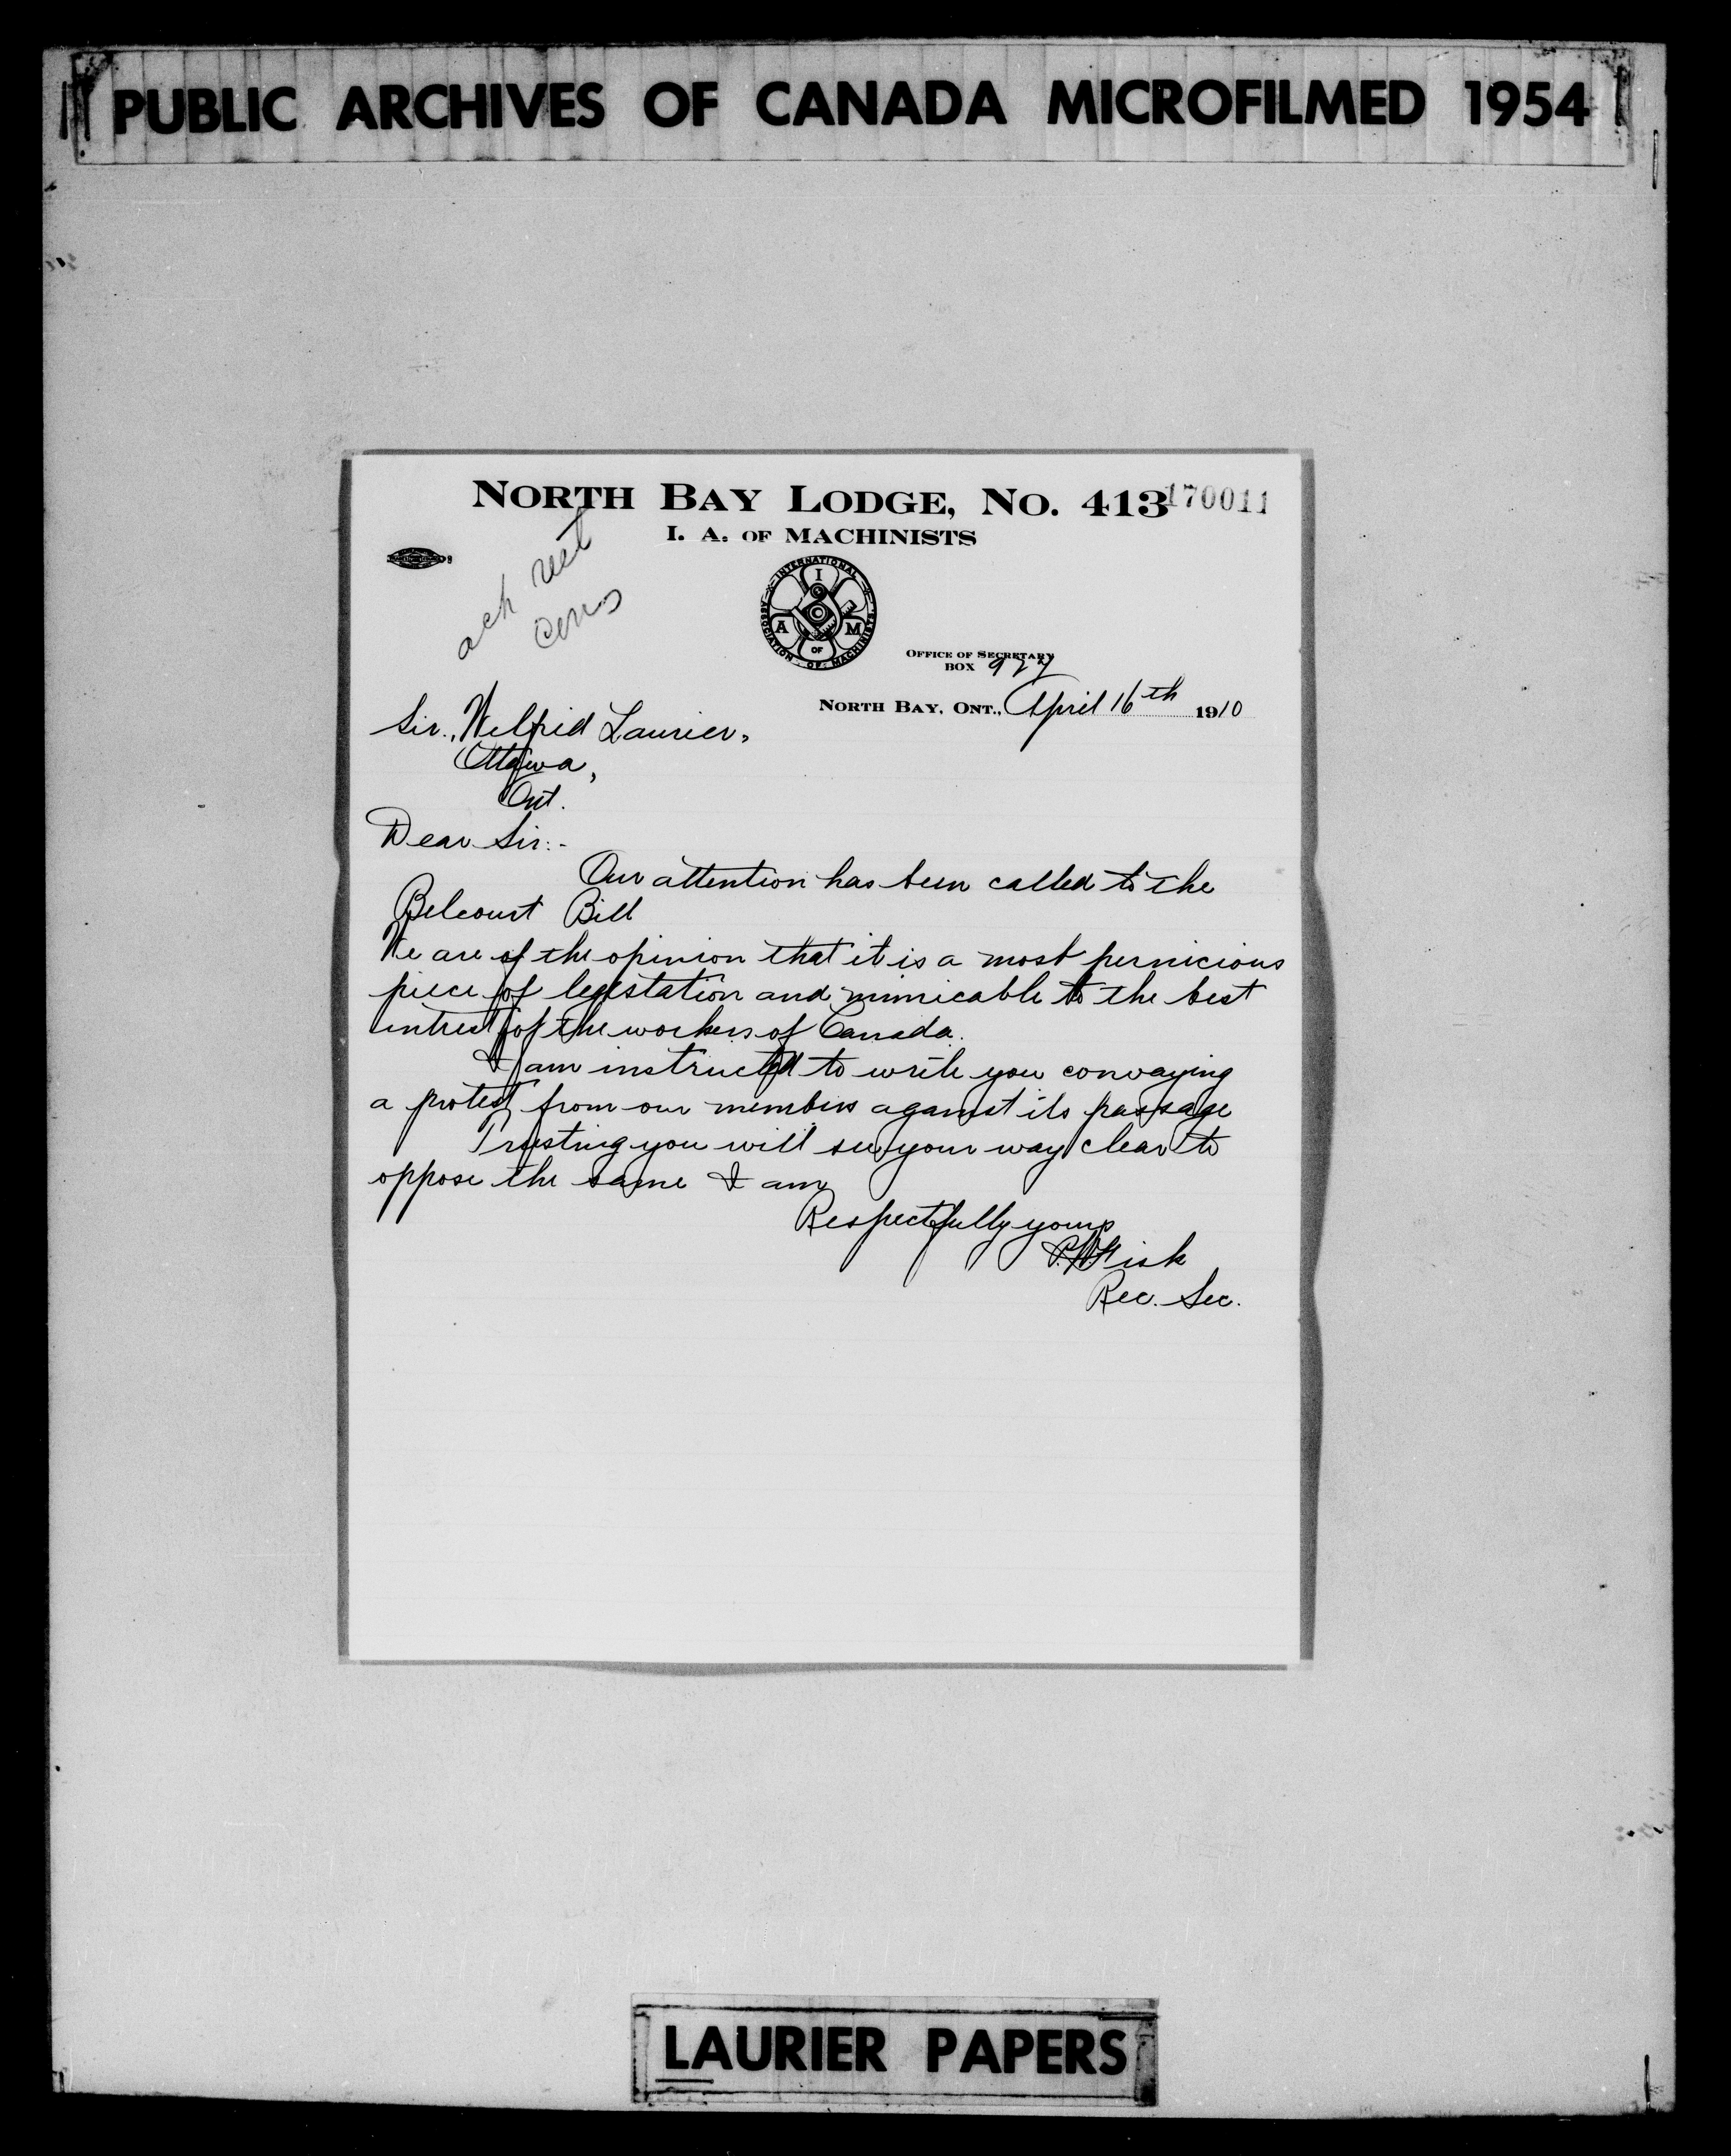 PUBLIC ARCHIVES OF CANADA MICROFILMED 1954
NORTH BAY LODGE, NO. 413
170011
I. A. OF MACHINISTS
INTERNATIONAL ASSOCIATION OF MACHINISTS
I A OF M
ack
OFFICE OF SECRETARY
BOX 927
NORTH BAY, ONT., April 16th 1910
Sir., Wilfrid Laurier,
Ottawa,
Ont.
Dear Sir:-
Our attention has been called to the
Belcourt Bill
We are of the opinion that it is a most pernicious
piece of legistation and inimicable to the best
intrest of the workers of Canada.
I am instructed to write you convaying
a protest from our members against its passage
Trusting you will see your way clear to
oppose the same I am
Respectfully yours
Fisk
Rec. Sec.
LAURIER PAPERS